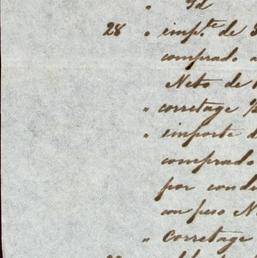 " Id
28 " imp.te de
comprado a
Neto de
" corretage
" importe d
comprado
por cond
con peso N
" corretage